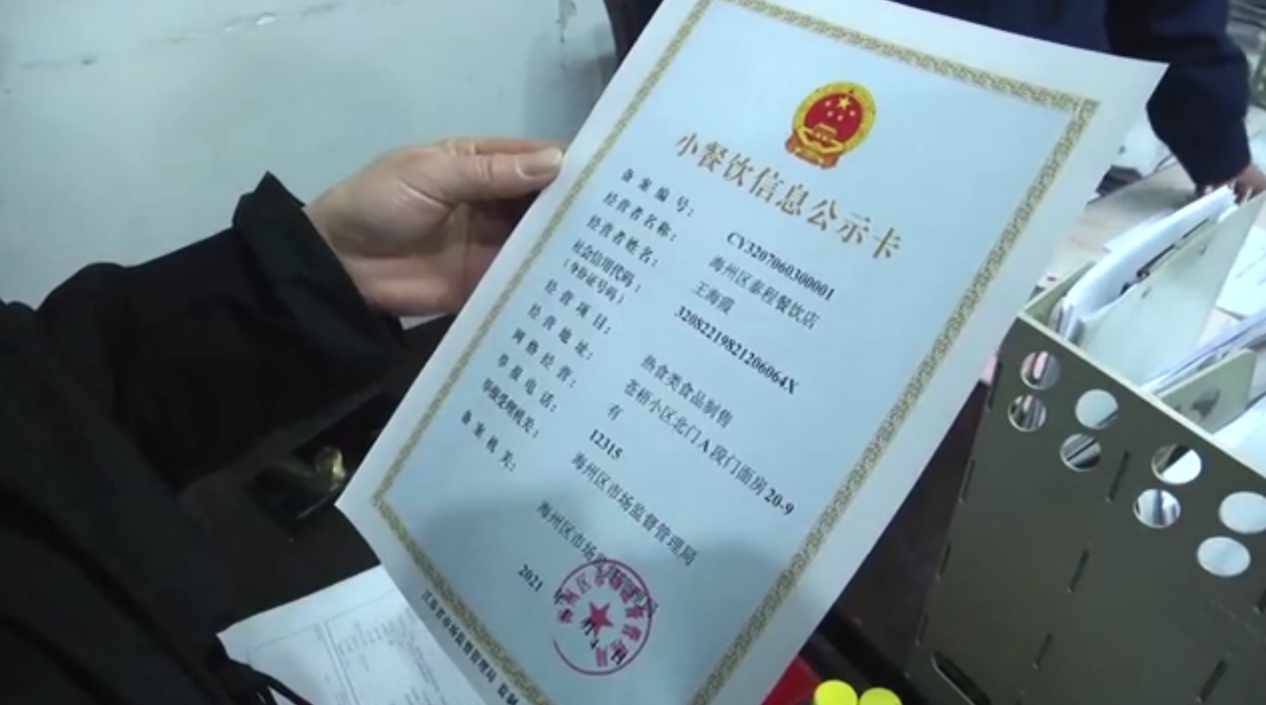 小餐饮信息公示卡
备案编号： CY3207060300001
经营者名称： 海州区泰程餐饮店
经营者姓名： 王海霞
社会信用代码： 32082219821206064X
（身份证号码）
经营项目： 热食类食品制售
经营地址： 苍梧小区北门A段门面房20-9
网络经营： 有
举报电话： 12315
举报受理机关： 海州区市场监督管理局
备案机关： 海州区市场
2021
江苏省市场监督管理局 监制